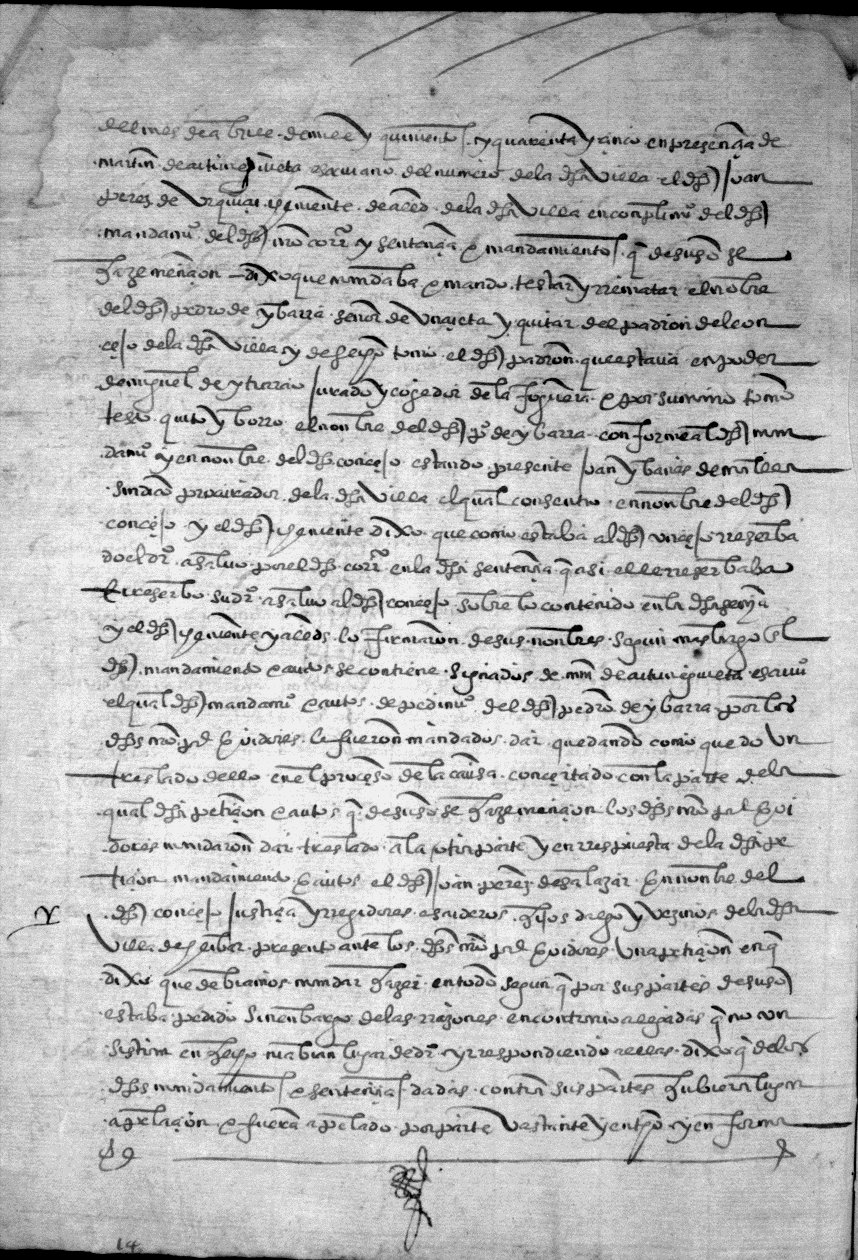 del mes de abrill de mill y quinientos y quarenta y çinco en presençia de
martin de autinçivieta escrivano del numero de la dha villa el dho Juan
peres de Urquiçu teniente de alcd de la dha villa en conplimiº del dho
mandamiº del dho nro corror y sentençia e mandamiento q de suso se
haze mençion dixo que mandaba e mando testar y rrematar el nonbre
del dho pedro de ybarra señor de Unçueta y quitar del padron del con
çejo de la dha villa y de fecho tomo el dho padron que estava en poder
de miguel de yturrao Jurado y cojedor de la foguera e por su mano tomo
testo quito y borro el nonbre del dho pº de ybarra conforme al dho man
damiº y en nonbre del dho conçejo estando presente Juan ybanes de mallea
sindico procurador de la dha villa el qual consentio en nonbre del dho
conçejo y el dho teniente dixo que como estaba al dho conçejo rreserba
do el drº a salvo por el dho corror en la dha sentençia q asi el le rreserbaba
E rreserbo su drº a salvo al dho conçejo sobre lo contenido en la dha sentençia
y el dho teniente y alcds lo firmaron de sus nonbres segun mas largo el
dho mandamiento e autos se contiene signados de mrn de autunçivieta escrivº
el qual dho mandamiº e autos de pedimiº del dho pedro de ybarra por los
dhos nro prd E oidores le fueron mandados dar quedando como quedo un
treslado dello en el proçeso de la causa conçertado con la parte de la
qual dha petiçion e autos q de suso se haze mençion los dhos nro prd E oi
dores mandaron dar treslado a la otra parte y en rrespuesta de la dha pe
tiçion mandamiento E autos el dho Juan peres de salazar En nonbre del
dho conçejo Justiçia y rregidores escuderos hijos dalgo y vezinos de la dha
Villa de heibar presento ante los dhos nro prd E oidores Una petiçion en q
dixo que debiamos mandar hazer en todo segun q por sus partes de suso
estaba pedido sin enbargo de las rrazones en contrario alegadas q no con
sistian en fecho ni abian lugar de drº y rrespondiendo a ellas dixo q de los
dhos mandamiento e sentençia dadas contra sus partes hubiera lugar
apelaçion e fuera apelado por parte bastante y en tpo y en forma
14